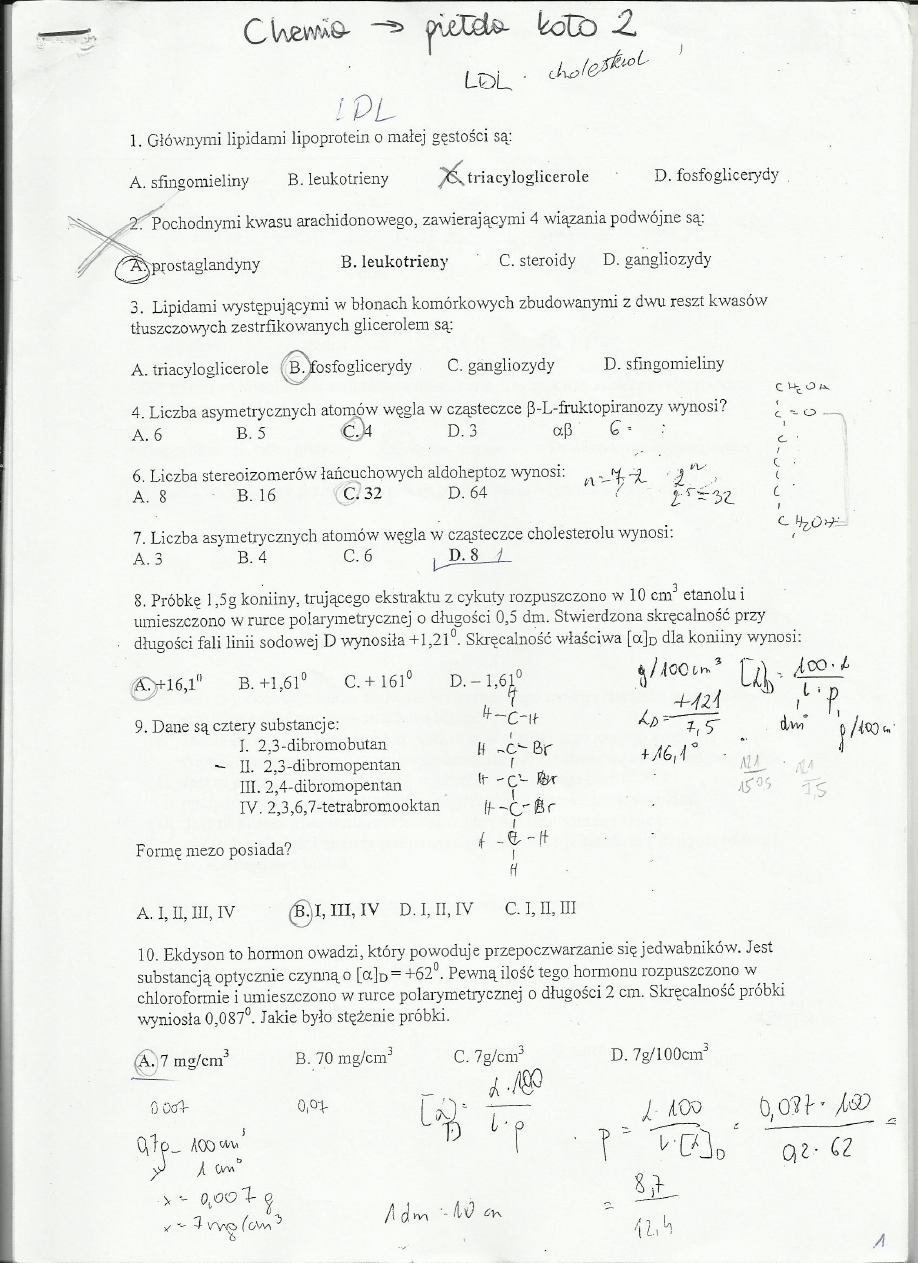 Chemia → piętdo koło 2
LDL cholesterol
LDL
1. Głównymi lipidami lipoprotein o małej gęstości są:
A. sfingomieliny B. leukotrieny C. triacyloglicerole D. fosfoglicerydy
2. Pochodnymi kwasu arachidonowego, zawierającymi 4 wiązania podwójne są:
A. prostaglandyny B. leukotrieny C. steroidy D. gangliozydy
3. Lipidami występującymi w błonach komórkowych zbudowanymi z dwu reszt kwasów
tłuszczowych zestrfikowanych glicerolem są:
A. triacyloglicerole B. fosfoglicerydy C. gangliozydy D. sfingomieliny
4. Liczba asymetrycznych atomów węgla w cząsteczce β-L-fruktopiranozy wynosi?
A. 6 B. 5 C. 4 D. 3 αβ 6 =
CH2OH
C=O
C
C
C
CH2OH
6. Liczba stereoizomerów łańcuchowych aldoheptoz wynosi: n=7-2 2^n
A. 8 B. 16 C. 32 D. 64 2^5=32
7. Liczba asymetrycznych atomów węgla w cząsteczce cholesterolu wynosi:
A. 3 B. 4 C. 6 D. 8
8. Próbkę 1,5g koniiny, trującego ekstraktu z cykuty rozpuszczono w 10 cm³ etanolu i
umieszczono w rurce polarymetrycznej o długości 0,5 dm. Stwierdzona skręcalność przy
długości fali linii sodowej D wynosiła +1,21⁰. Skręcalność właściwa [α]D dla koniiny wynosi:
A. +16,1⁰ B. +1,61⁰ C. + 161⁰ D. – 1,61⁰
g/100cm³ [α]D = 100·α / l·p
dm g/100cm
αD = +121 / 7,5
+16,1°
121 / 7,5
9. Dane są cztery substancje:
I. 2,3-dibromobutan
– II. 2,3-dibromopentan
III. 2,4-dibromopentan
IV. 2,3,6,7-tetrabromooktan
H
H-C-H
H-C-Br
H-C-
H-C-Br
-C-H
H
Formę mezo posiada?
A. I, II, III, IV B. I, III, IV D. I, II, IV C. I, II, III
10. Ekdyson to hormon owadzi, który powoduje przepoczwarzanie się jedwabników. Jest
substancją optycznie czynną o [α]D = +62⁰. Pewną ilość tego hormonu rozpuszczono w
chloroformie i umieszczono w rurce polarymetrycznej o długości 2 cm. Skręcalność próbki
wyniosła 0,087⁰. Jakie było stężenie próbki.
A. 7 mg/cm³ B. 70 mg/cm³ C. 7g/cm³ D. 7g/100cm³
0,007 0,07
[α]D = α·100 / l·p
p = α·100 / l·[α]D = 0,087·100 / 0,2·62 =
= 8,7 / 12,4
0,7g – 100 cm³
x 1 cm³
x = 0,007 g
x = 7 mg/cm³
1dm = 10 cm
1